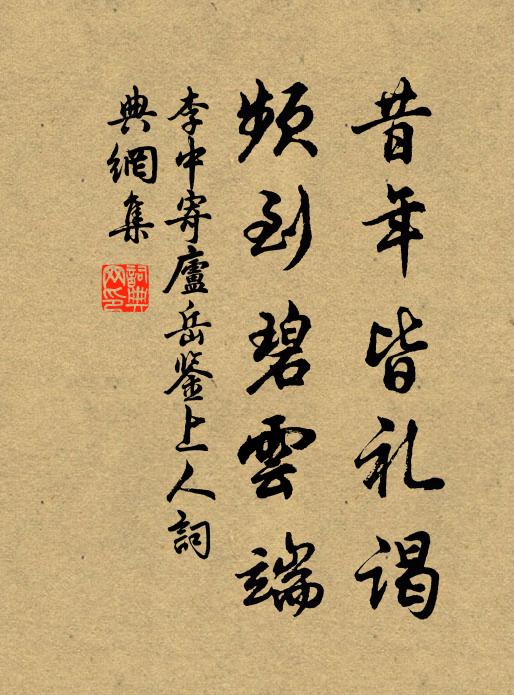 昔年皆礼谒
频到碧雲端
李中寄廬岳鉴上人詞
典網集
詞典网印